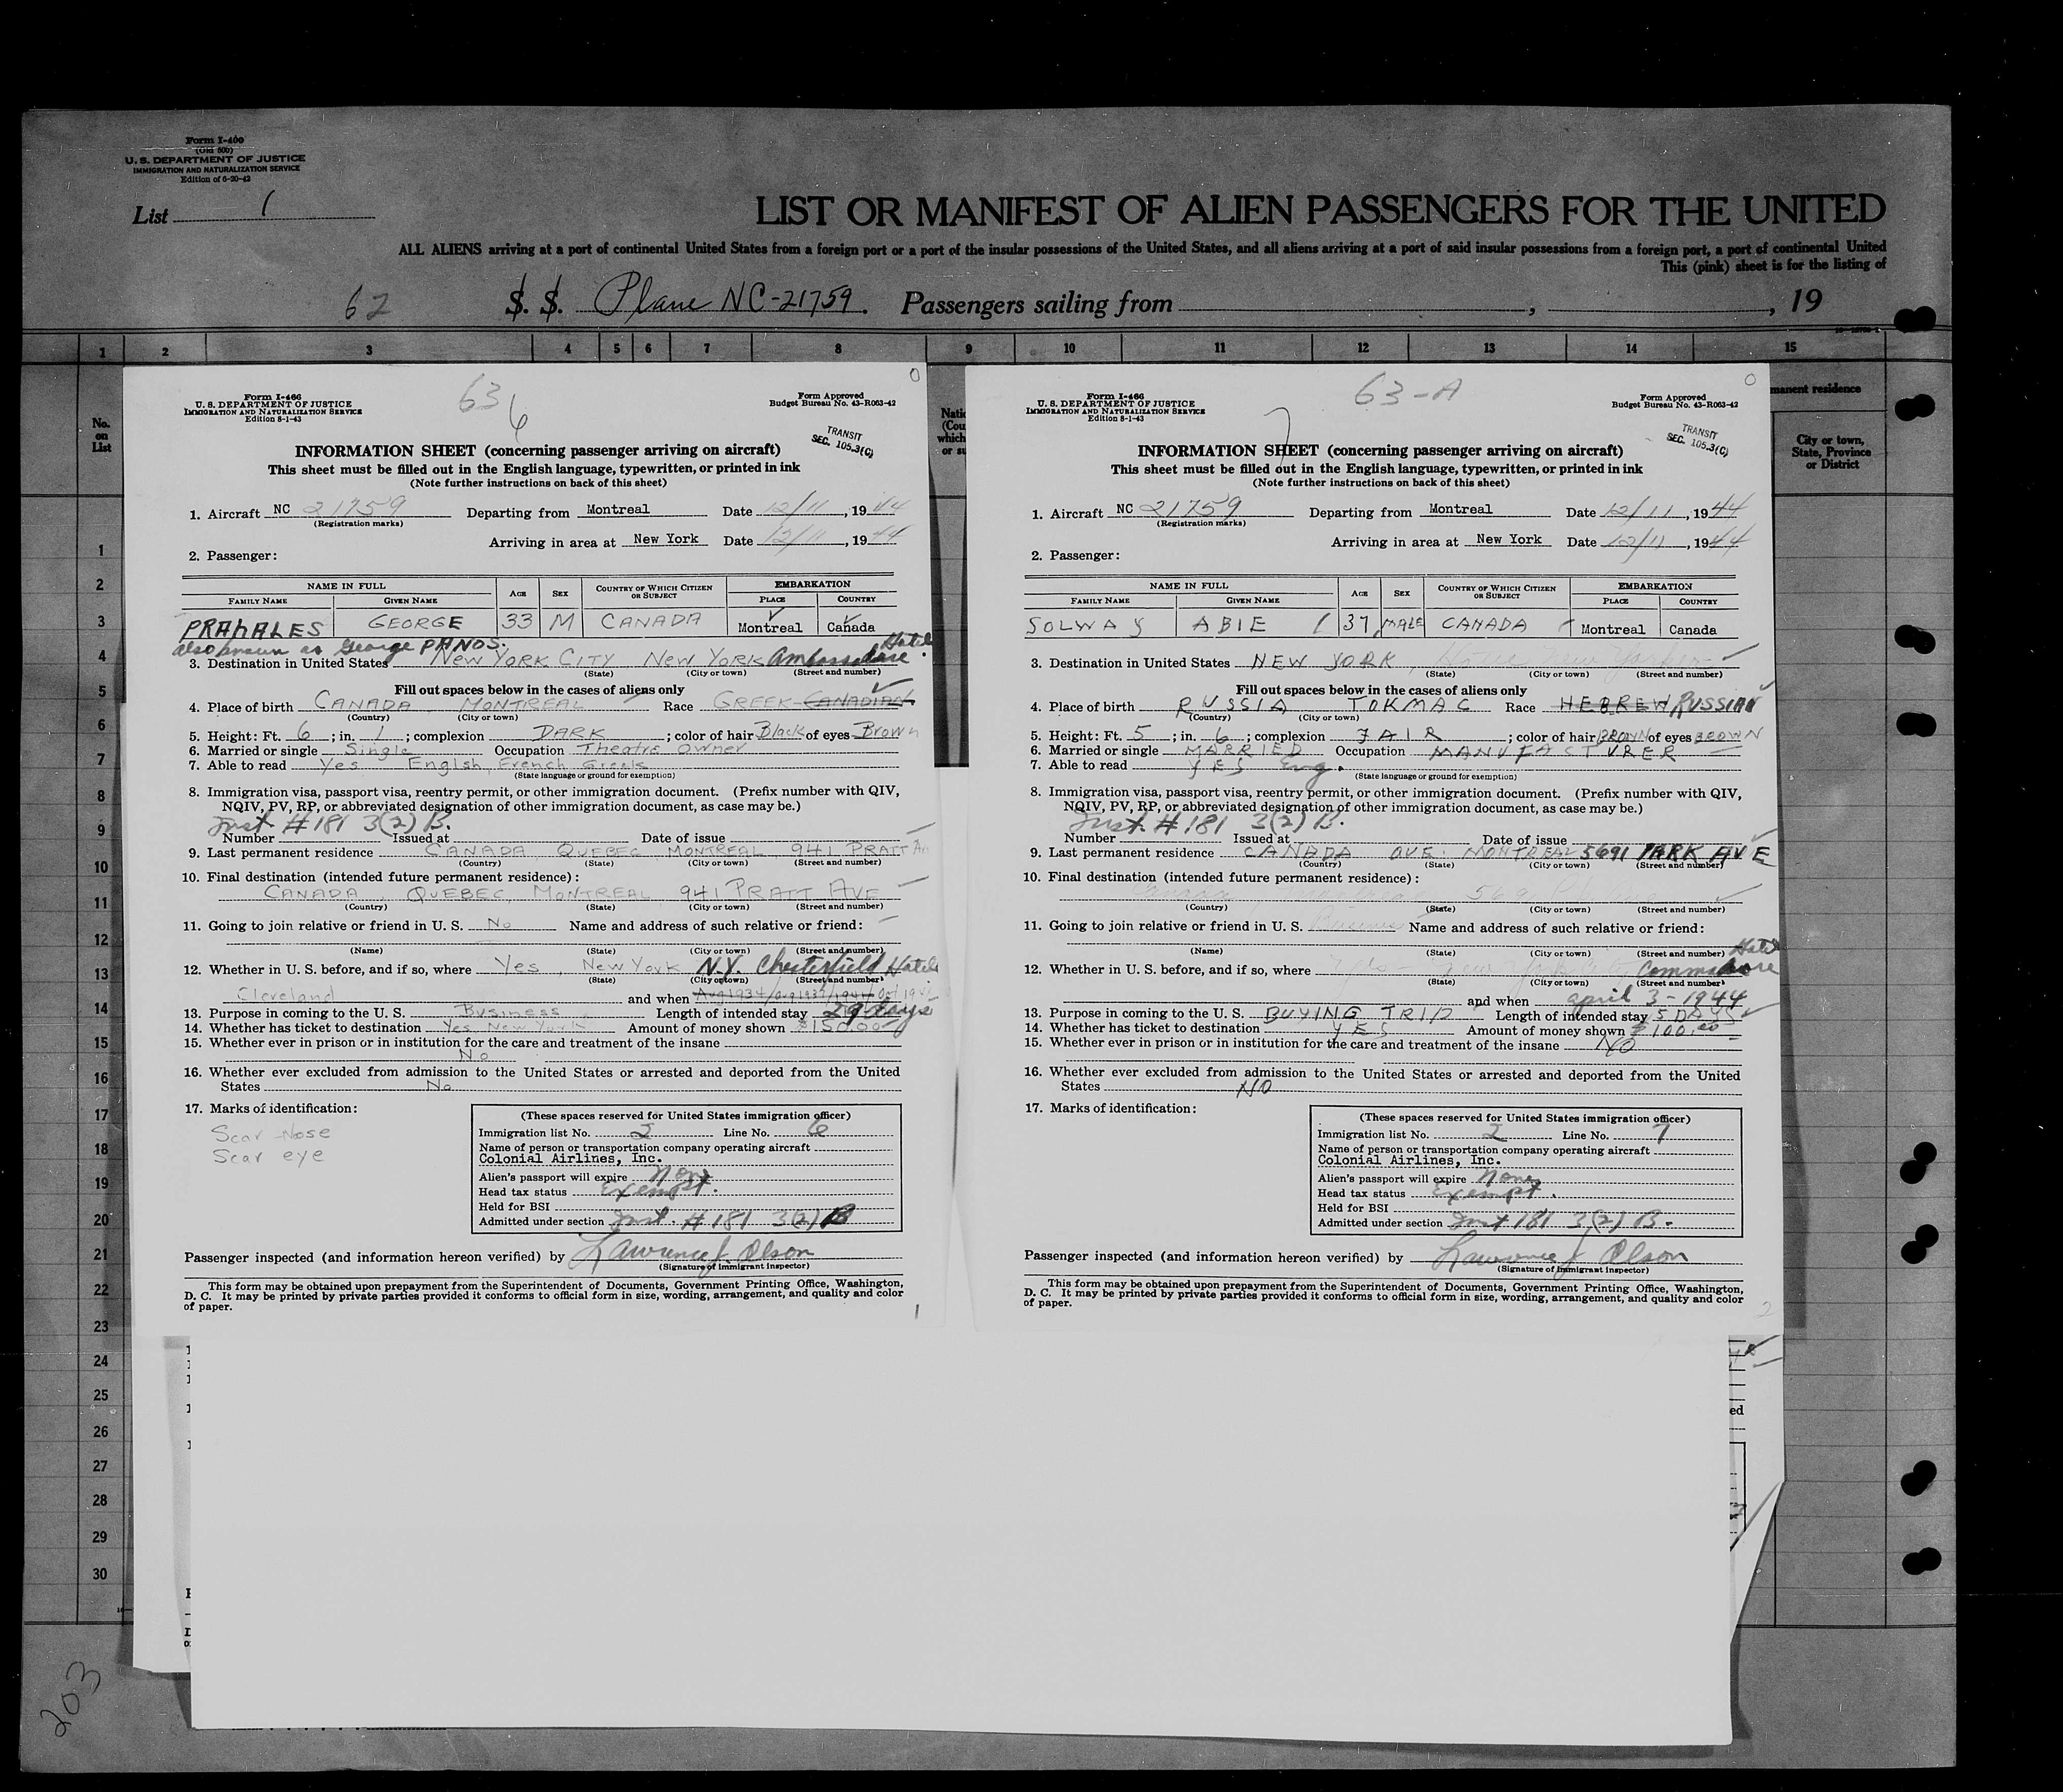 Form I-400
(Old 500)
U. S. DEPARTMENT OF JUSTICE
IMMIGRATION AND NATURALIZATION SERVICE
Edition of 6-20-42
List 1
LIST OR MANIFEST OF ALIEN PASSENGERS FOR THE UNITED
ALL ALIENS arriving at a port of continental United States from a foreign port or a port of the insular possessions of the United States, and all aliens arriving at a port of said insular possessions from a foreign port, a port of continental United
This (pink) sheet is for the listing of
62 S. S. Plane NC-21759. Passengers sailing from , , 19
1 2 3 4 5 6 7 8 9 10 11 12 13 14 15
No. on List
manent residence
City or town, State, Province or District
1
2
3
4
5
6
7
8
9
10
11
12
13
14
15
16
17
18
19
20
21
22
23
24
25
26
27
28
29
30
203
Form I-466
U. S. DEPARTMENT OF JUSTICE
IMMIGRATION AND NATURALIZATION SERVICE
Edition 8-1-43
63
6
Form Approved
Budget Bureau No. 43-R063-42
TRANSIT
SEC. 105.3(C)
INFORMATION SHEET (concerning passenger arriving on aircraft)
This sheet must be filled out in the English language, typewritten, or printed in ink
(Note further instructions on back of this sheet)
1. Aircraft NC 21759 Departing from Montreal Date 12/11, 1944
(Registration marks)
Arriving in area at New York Date 12/11, 1944
2. Passenger:
NAME IN FULL AGE SEX COUNTRY OF WHICH CITIZEN OR SUBJECT EMBARKATION
FAMILY NAME GIVEN NAME PLACE COUNTRY
PRAHALES GEORGE 33 M CANADA Montreal Canada
also known as George PANOS. Hotel
3. Destination in United States NEW YORK CITY NEW YORK
(State) (City or town) (Street and number)
Fill out spaces below in the cases of aliens only
4. Place of birth CANADA MONTREAL Race GREEK CANADIAN
(Country) (City or town)
5. Height: Ft. 6; in. 1; complexion DARK; color of hair Black of eyes Brown
6. Married or single Single Occupation Theatre Owner
7. Able to read Yes English, French, Greek
(State language or ground for exemption)
8. Immigration visa, passport visa, reentry permit, or other immigration document. (Prefix number with QIV,
NQIV, PV, RP, or abbreviated designation of other immigration document, as case may be.)
Inst #181 3(2) B.
Number Issued at Date of issue
9. Last permanent residence CANADA, QUEBEC, MONTREAL 941 PRATT Av
(Country) (State) (City or town) (Street and number)
10. Final destination (intended future permanent residence):
CANADA, QUEBEC, MONTREAL, 941 PRATT AVE
(Country) (State) (City or town) (Street and number)
11. Going to join relative or friend in U. S. No Name and address of such relative or friend:
(Name) (State) (City or town) (Street and number)
12. Whether in U. S. before, and if so, where Yes, New York N.Y. Chesterfield Hotel
(State) (City or town) (Street and number)
Cleveland and when Aug 1934/Aug 1937/1941/Oct
13. Purpose in coming to the U. S. Business Length of intended stay 29 days
14. Whether has ticket to destination Yes New York Amount of money shown $150.00
15. Whether ever in prison or in institution for the care and treatment of the insane
No
16. Whether ever excluded from admission to the United States or arrested and deported from the United
States No
17. Marks of identification:
Scar Nose
Scar eye
(These spaces reserved for United States immigration officer)
Immigration list No. 2 Line No. 6
Name of person or transportation company operating aircraft
Colonial Airlines, Inc.
Alien's passport will expire None
Head tax status Exempt.
Held for BSI
Admitted under section Inst. #181 3(2) B
Passenger inspected (and information hereon verified) by Lawrence J. Olson
(Signature of immigrant inspector)
This form may be obtained upon prepayment from the Superintendent of Documents, Government Printing Office, Washington,
D. C. It may be printed by private parties provided it conforms to official form in size, wording, arrangement, and quality and color
of paper.
1
Form I-466
U. S. DEPARTMENT OF JUSTICE
IMMIGRATION AND NATURALIZATION SERVICE
Edition 8-1-43
63-A
7
Form Approved
Budget Bureau No. 43-R063-42
TRANSIT
SEC. 105.3(C)
INFORMATION SHEET (concerning passenger arriving on aircraft)
This sheet must be filled out in the English language, typewritten, or printed in ink
(Note further instructions on back of this sheet)
1. Aircraft NC 21759 Departing from Montreal Date 12/11, 1944
(Registration marks)
Arriving in area at New York Date 12/11, 1944
2. Passenger:
NAME IN FULL AGE SEX COUNTRY OF WHICH CITIZEN OR SUBJECT EMBARKATION
FAMILY NAME GIVEN NAME PLACE COUNTRY
SOLWAY ABIE 37 MALE CANADA Montreal Canada
3. Destination in United States NEW YORK
(State) (City or town) (Street and number)
Fill out spaces below in the cases of aliens only
4. Place of birth RUSSIA TOKMAC Race HEBREW RUSSIAN
(Country) (City or town)
5. Height: Ft. 5; in. 6; complexion FAIR; color of hair BROWN of eyes BROWN
6. Married or single MARRIED Occupation MANUFACTURER
7. Able to read YES Eng.
(State language or ground for exemption)
8. Immigration visa, passport visa, reentry permit, or other immigration document. (Prefix number with QIV,
NQIV, PV, RP, or abbreviated designation of other immigration document, as case may be.)
Inst. #181 3(2) B.
Number Issued at Date of issue
9. Last permanent residence CANADA QUE. MONTREAL 5691 PARK AVE
(Country) (State) (City or town) (Street and number)
10. Final destination (intended future permanent residence):
Canada
(Country) (State) (City or town) (Street and number)
11. Going to join relative or friend in U. S. Business Name and address of such relative or friend:
(Name) (State) (City or town) (Street and number)
Hotel
12. Whether in U. S. before, and if so, where Yes New York Commodore
(State) (City or town) (Street and number)
and when april 3-1944
13. Purpose in coming to the U. S. BUYING TRIP Length of intended stay 5 DAYS
14. Whether has ticket to destination YES Amount of money shown $100.00
15. Whether ever in prison or in institution for the care and treatment of the insane NO
16. Whether ever excluded from admission to the United States or arrested and deported from the United
States NO
17. Marks of identification:
(These spaces reserved for United States immigration officer)
Immigration list No. 2 Line No. 7
Name of person or transportation company operating aircraft
Colonial Airlines, Inc.
Alien's passport will expire None
Head tax status Exempt.
Held for BSI
Admitted under section Inst 181 3(2) B.
Passenger inspected (and information hereon verified) by Lawrence J. Olson
(Signature of immigrant inspector)
This form may be obtained upon prepayment from the Superintendent of Documents, Government Printing Office, Washington,
D. C. It may be printed by private parties provided it conforms to official form in size, wording, arrangement, and quality and color
of paper.
2